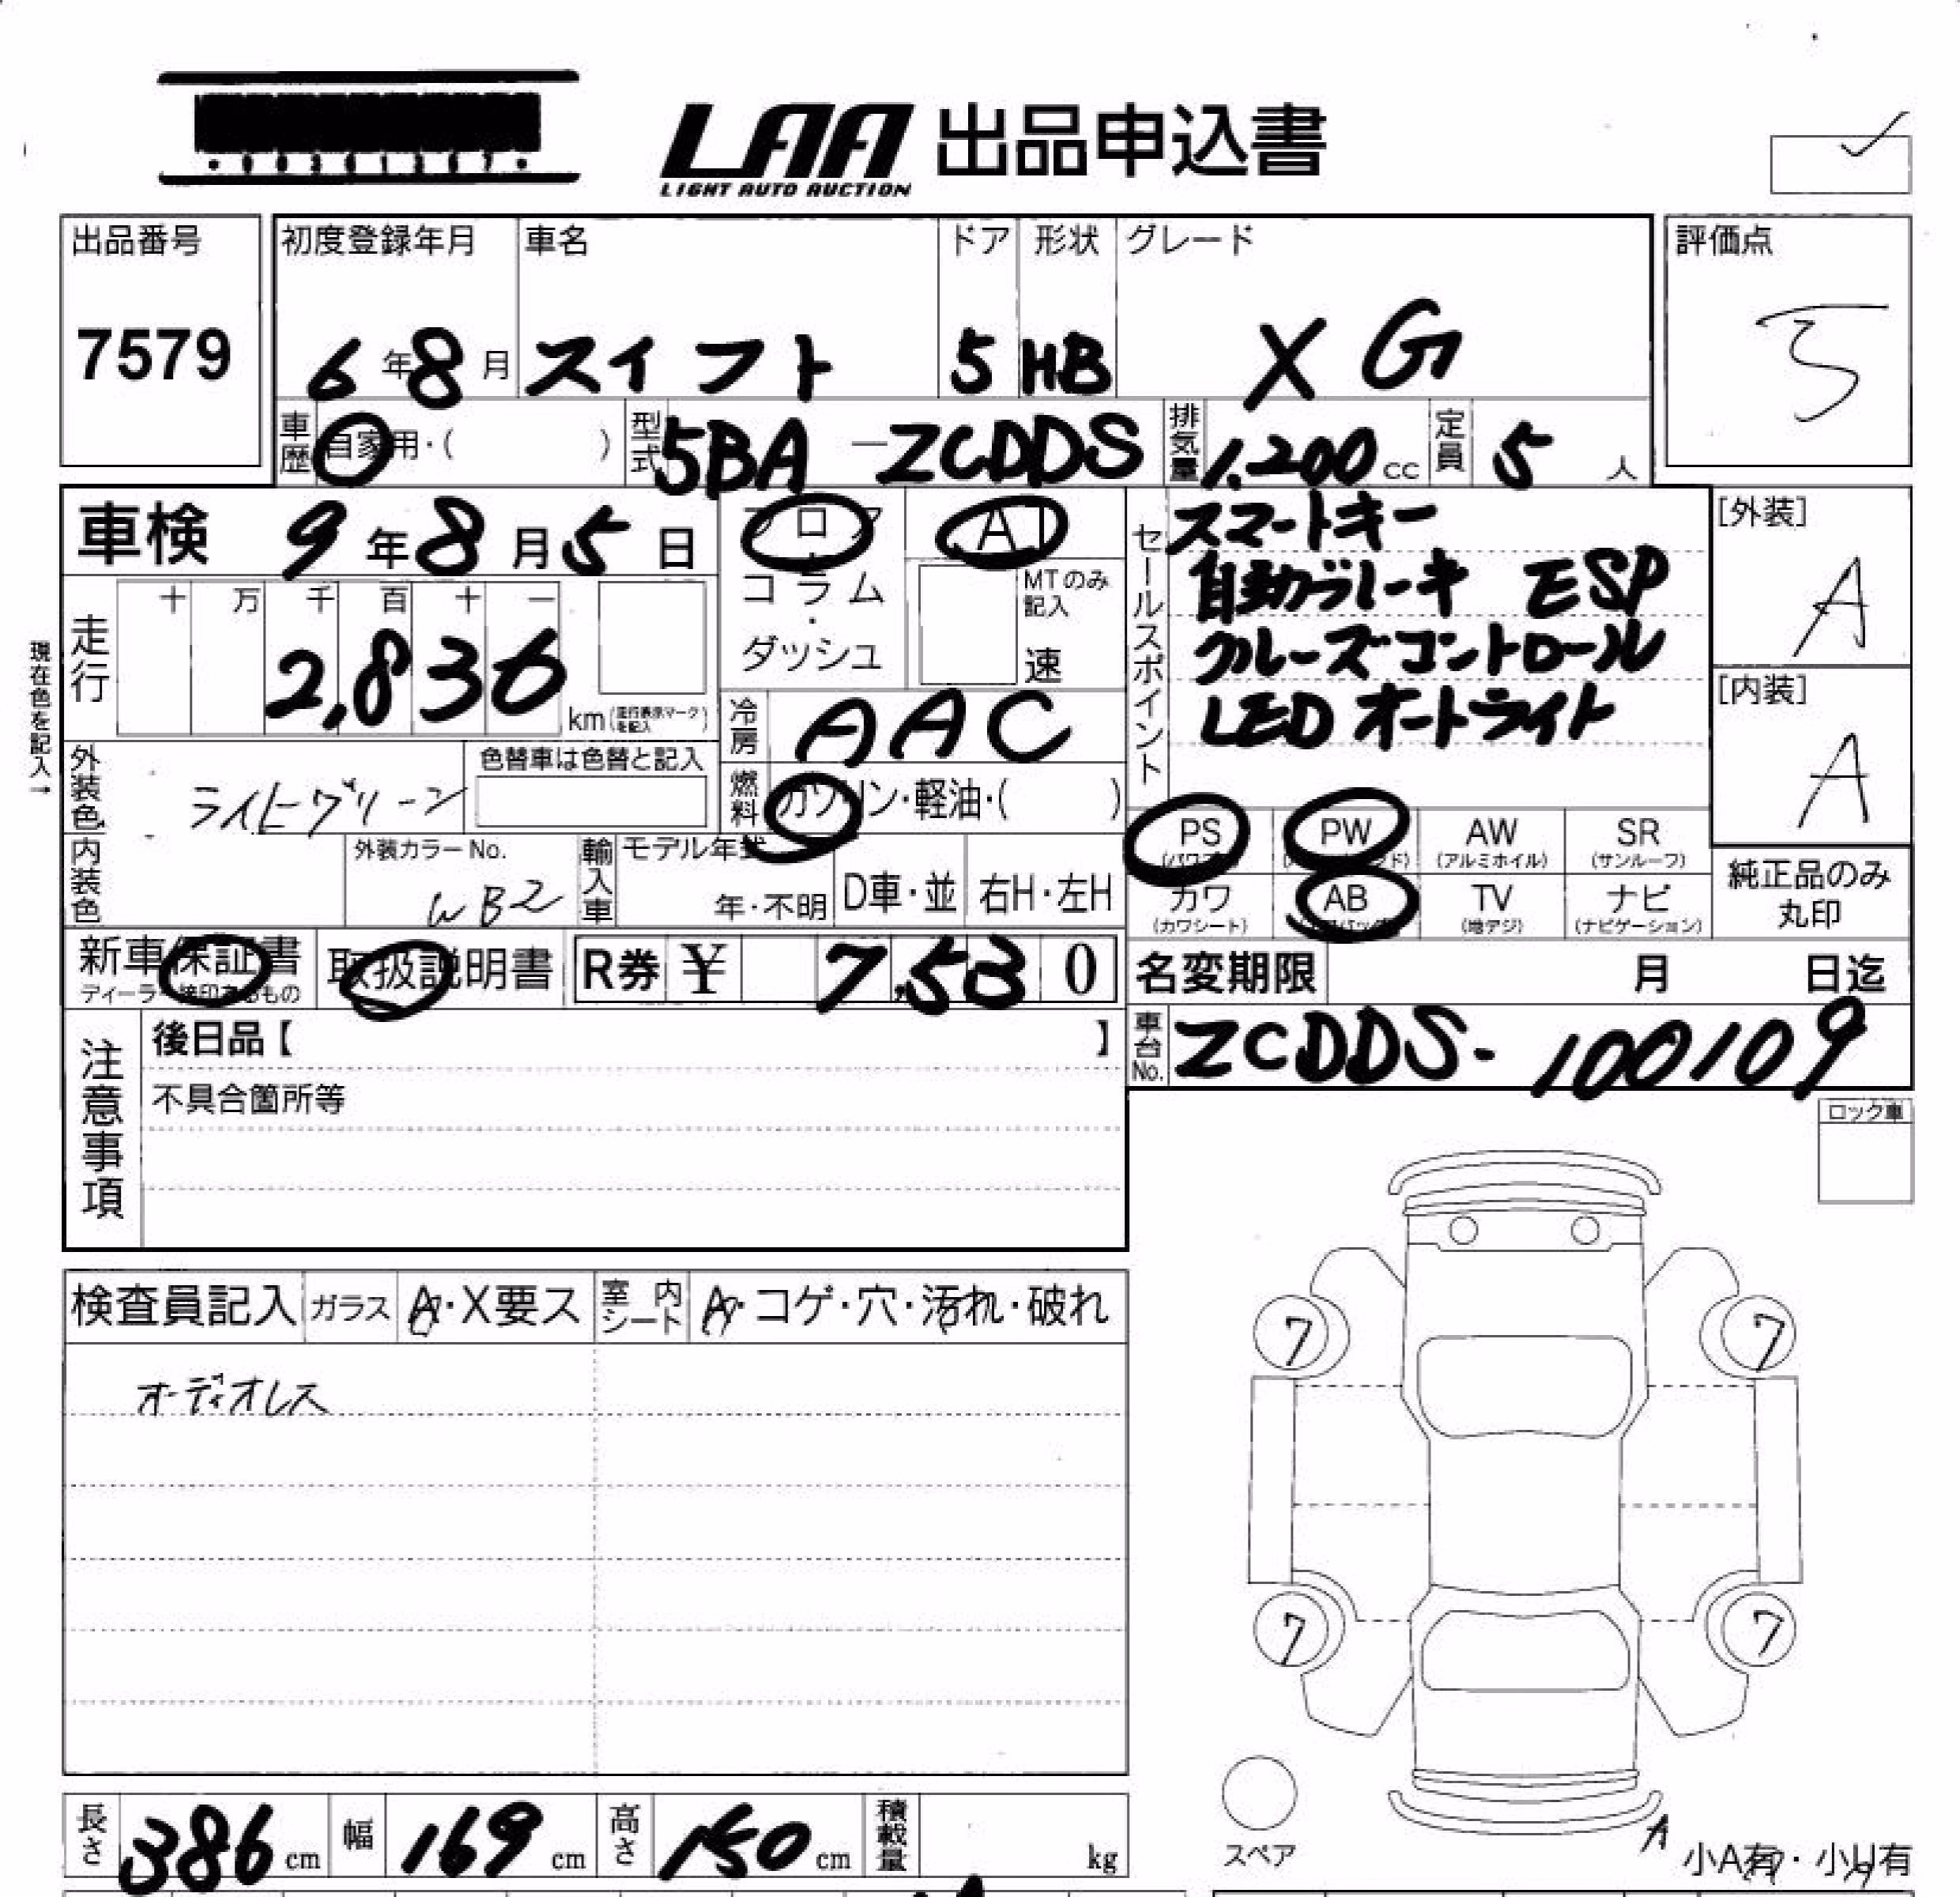 LAA 出品申込書
LIGHT AUTO AUCTION
出品番号
7579
初度登録年月
6年8月
車名
スイフト
ドア
5
形状
HB
グレード
XG
評価点
5
車歴
自家用・( )
型式
5BA-ZCDDS
排気量
1,200cc
定員
5人
車検 9年8月5日
フロア
コラム
・
ダッシュ
AT
MTのみ
記入
速
セールスポイント
スマートキー
自動ブレーキ ESP
クルーズコントロール
LEDオートライト
[外装]
A
[内装]
A
現在色を記入→
走行
十 万 千 百 十 一
2,836
km(走行表示マークを記入)
冷房
AAC
燃料
ガソリン・軽油・( )
外装色
ライトグリーン
色替車は色替と記入
内装色
外装カラーNo.
WB2
輸入車
モデル年式
年・不明
D車・並
右H・左H
PS
PW
AW
(アルミホイル)
SR
(サンルーフ)
カワ
(カワシート)
AB
TV
(地デジ)
ナビ
(ナビゲーション)
純正品のみ
丸印
新車保証書
取扱説明書
R券 ¥ 7,530
名変期限 月 日迄
車台No.
ZCDDS-100109
注意事項
後日品【 】
不具合箇所等
ロック車
検査員記入
ガラス
A・X要ス
室内シート
A・コゲ・穴・汚れ・破れ
オーディオレス
7
7
7
7
スペア
A
小A有・小U有
長さ
386cm
幅
169cm
高さ
150cm
積載量
kg